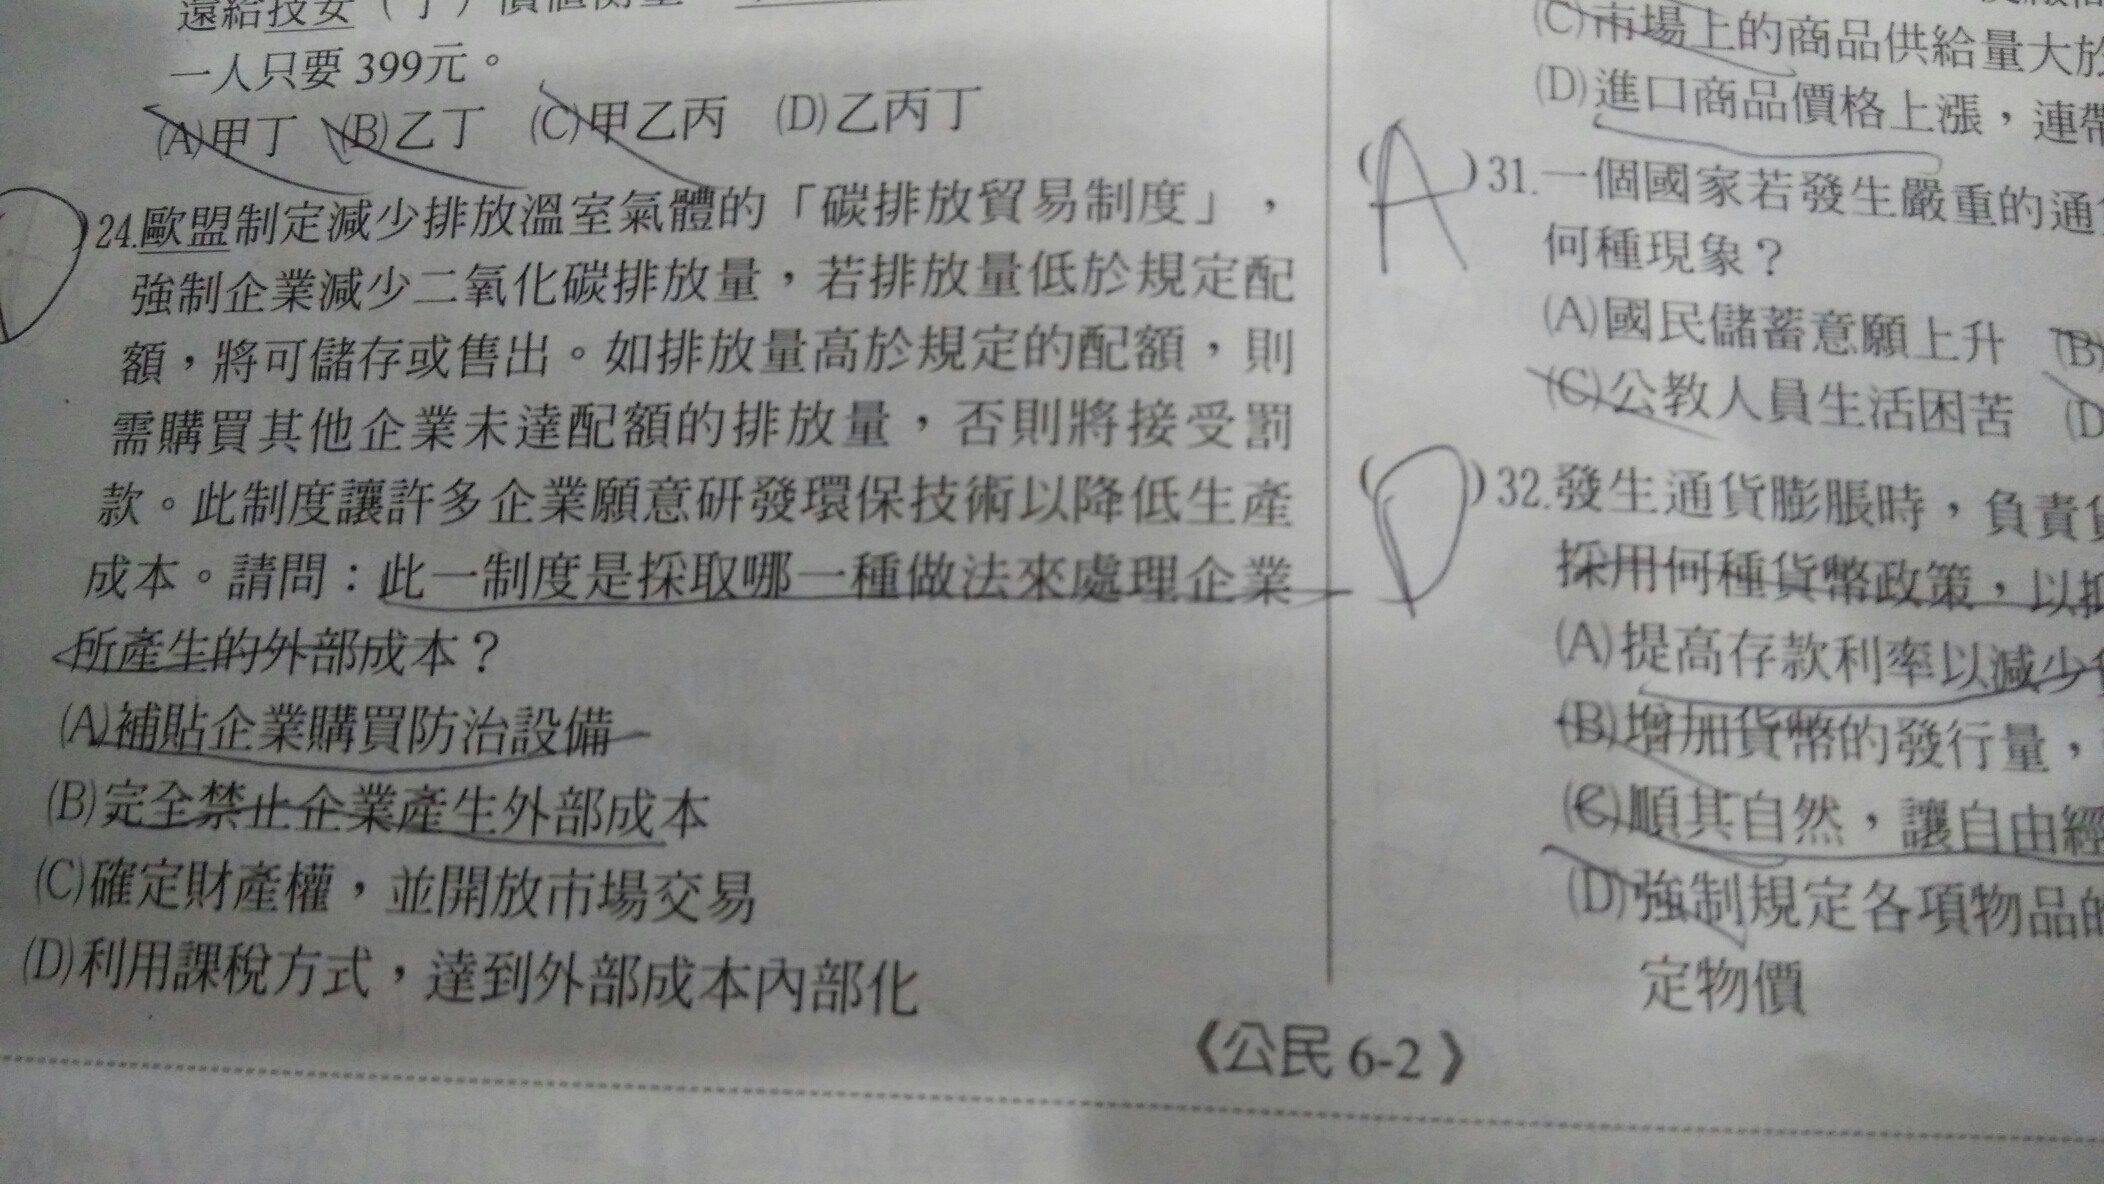 一人只要 399元。
(A)甲丁 (B)乙丁 (C)甲乙丙 (D)乙丙丁
D
)24.歐盟制定減少排放溫室氣體的「碳排放貿易制度」，
強制企業減少二氧化碳排放量，若排放量低於規定配
額，將可儲存或售出。如排放量高於規定的配額，則
需購買其他企業未達配額的排放量，否則將接受罰
款。此制度讓許多企業願意研發環保技術以降低生產
成本。請問：此一制度是採取哪一種做法來處理企業
所產生的外部成本？
(A)補貼企業購買防治設備
(B)完全禁止企業產生外部成本
(C)確定財產權，並開放市場交易
(D)利用課稅方式，達到外部成本內部化
(C)市場上的商品供給量大於
(D)進口商品價格上漲，連帶
(A)31.一個國家若發生嚴重的通
何種現象？
(A)國民儲蓄意願上升 (B)
(C)公教人員生活困苦 (D
(D)32.發生通貨膨脹時，負責
採用何種貨幣政策，以抑
(A)提高存款利率以減少
(B)增加貨幣的發行量，
(C)順其自然，讓自由經
(D)強制規定各項物品的
定物價
《公民 6-2 》